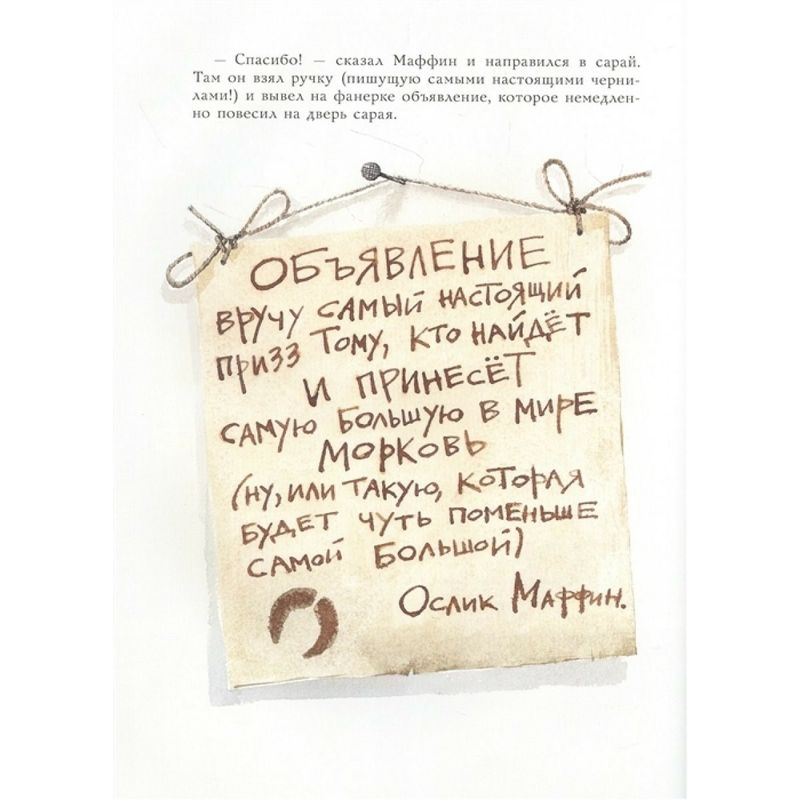 — Спасибо! — сказал Маффин и направился в сарай.
Там он взял ручку (пишущую самыми настоящими черни-
лами!) и вывел на фанерке объявление, которое немедлен-
но повесил на дверь сарая.
ОБЪЯВЛЕНИЕ
ВРУЧУ САМЫЙ НАСТОЯЩИЙ
ПРИЗЗ ТОМУ, КТО НАЙДЁТ
И ПРИНЕСЁТ
САМУЮ БОЛЬШУЮ В МИРЕ
МОРКОВЬ
(НУ, ИЛИ ТАКУЮ, КОТОРАЯ
БУДЕТ ЧУТЬ ПОМЕНЬШЕ
САМОЙ БОЛЬШОЙ)
ОСЛИК МАФФИН.